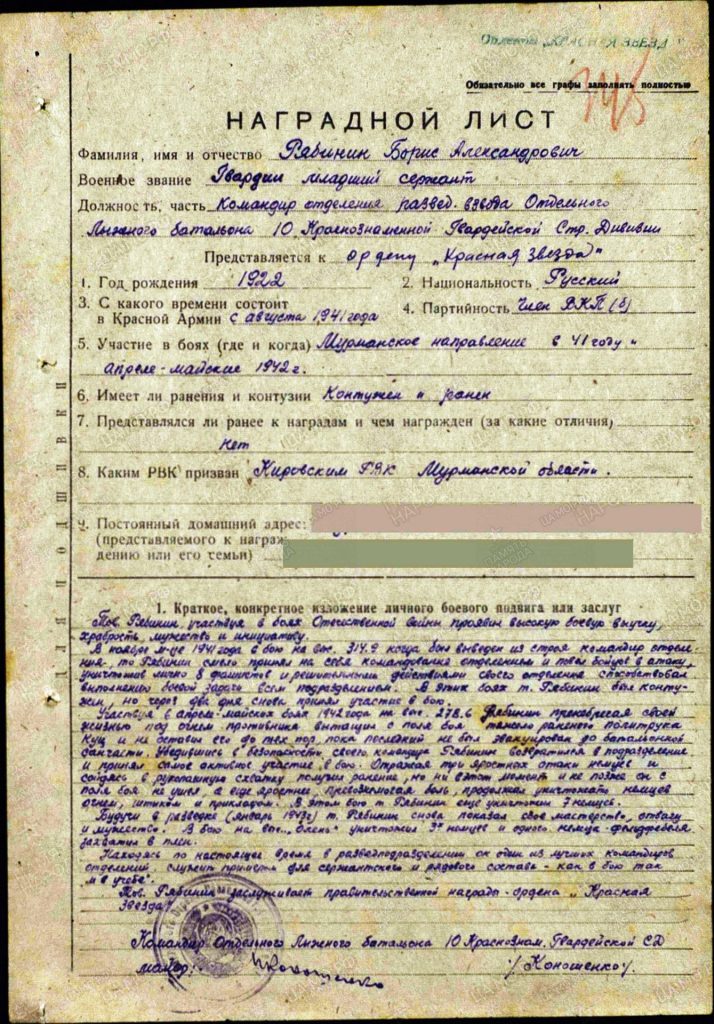 Орденом „КРАСНАЯ ЗВЕЗДА"
Обязательно все графы заполнять полностью
НАГРАДНОЙ ЛИСТ
Фамилия, имя и отчество Рябинин Борис Александрович
Военное звание Гвардии младший сержант
Должность, часть Командир отделения развед. взвода Отдельного
Лыжного батальона 10 Краснознаменной Гвардейской Стр. Дивизии
Представляется к ордену „Красная звезда"
1. Год рождения 1922 2. Национальность Русский
3. С какого времени состоит
в Красной Армии с августа 1941 года 4. Партийность Член ВКП(б)
5. Участие в боях (где и когда) Мурманское направление в 41 году и
апреле-майские 1942 г.
6. Имеет ли ранения и контузии Контужен и ранен
7. Представлялся ли ранее к наградам и чем награжден (за какие отличия)
нет
8. Каким РВК призван Кировским РВК Мурманской области.
9. Постоянный домашний адрес:
(представляемого к награж
дению или его семьи)
ДЛЯ ПОДШИВКИ
1. Краткое, конкретное изложение личного боевого подвига или заслуг
Тов. Рябинин, участвуя в боях Отечественной войны проявил высокую боевую выучку,
храбрость, мужество и инициативу.
В ноябре м-це 1941 года в бою на выс. 314.9 когда был выведен из строя командир отделе-
ния, то Рябинин смело принял на себя командования отделением и повел бойцов в атаку,
уничтожив лично 8 фашистов и решительными действиями своего отделения способствовал
выполнению боевой задачи всем подразделением. В этих боях т. Рябинин был конту-
жен, но через два дня снова принял участие в бою.
Участвуя в апреле-майских боях 1942 года на выс. 278.6 Рябинин пренебрегая своей
жизнью под огнем противника вытащил с поля боя тяжело раненого политрука
Куц и не оставил его до тех пор, пока последний не был эвакуирован до батальонной
санчасти. Убедившись в безопасности своего командира Рябинин возвратился в подразделение
и принял самое активное участие в бою. Отражая три яростных атаки немцев и
сойдясь в рукопашную схватку получил ранение, но ни в этот момент и не позже он с
поля боя не ушел, а еще яростнее, превозмогая боль, продолжал уничтожать немцев
огнем, штыком и прикладом. В этом бою т. Рябинин еще уничтожил 7 немцев.
Будучи в разведке (январь 1943г) т. Рябинин снова показал свое мастерство, отвагу
и мужество. В бою на выс. „Олень" уничтожил 3х немцев и одного немца-фельдфебеля
захватил в плен.
Находясь по настоящее время в разведподразделении он один из лучших командиров
отделений служит примером для сержантского и рядового состава - как в бою так
и в учебе.
Тов. Рябинин заслуживает правительственной награды - ордена „Красная
Звезда"
Командир Отдельного Лыжного батальона 10 Краснознам. Гвардейской СД
майор: /Коношенко/.